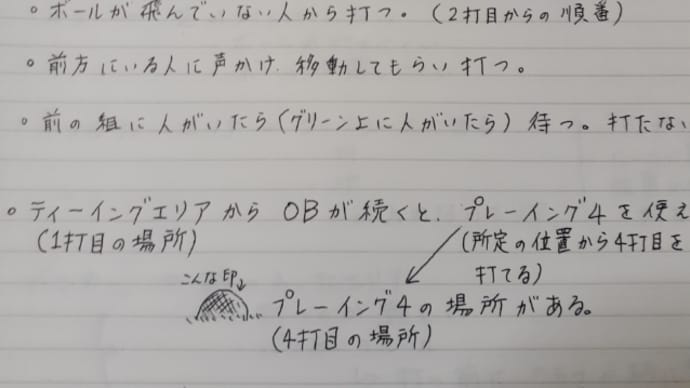 ◦ ボールが飛んでいない人から打つ。(2打目からの順番)
◦ 前方にいる人に声かけ、移動してもらい打つ。
◦ 前の組に人がいたら(グリーン上に人がいたら) 待つ。打たない
◦ ティーイングエリアから OBが続くと、プレーイング4を使え
(1打目の場所)
(所定の位置から4打目を
打てる)
こんな印
プレーイング4の場所がある。
(4打目の場所)